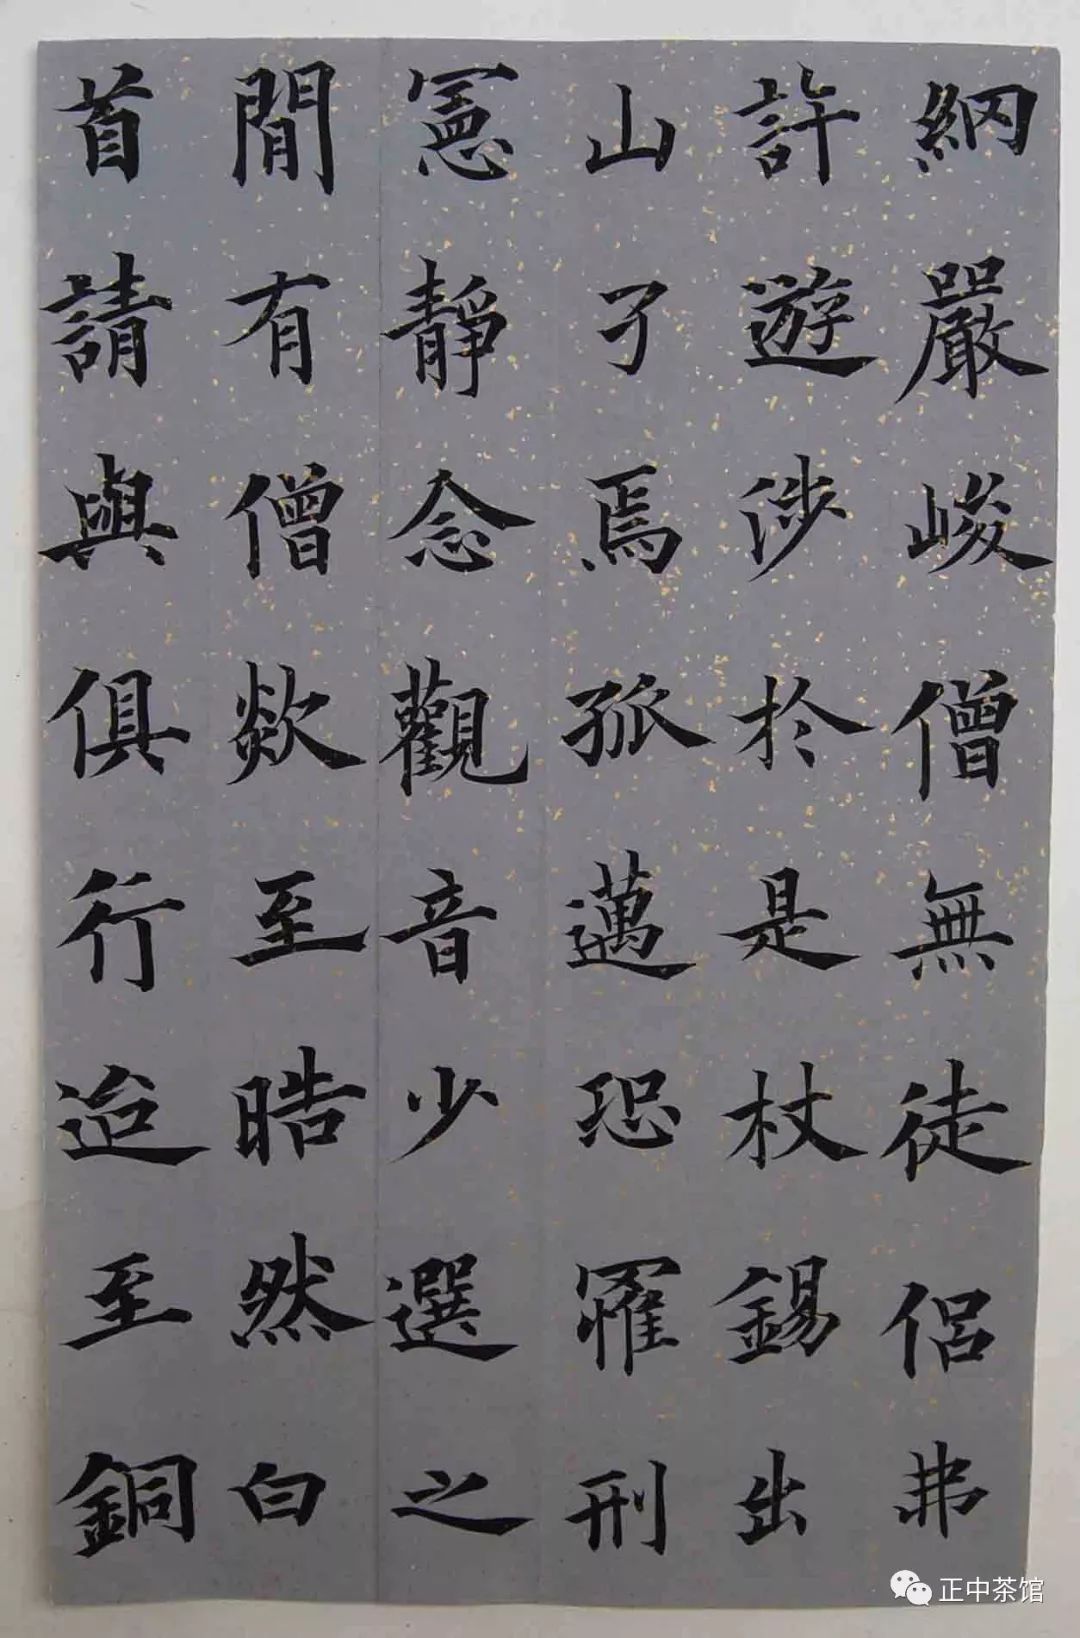 網嚴峻僧無徒侶弗
許遊涉於是杖錫出
山了焉孤邁恐罹刑
憲靜念觀音少選之
閒有僧欻至皓然白
首請與俱行迨至銅
正中茶馆